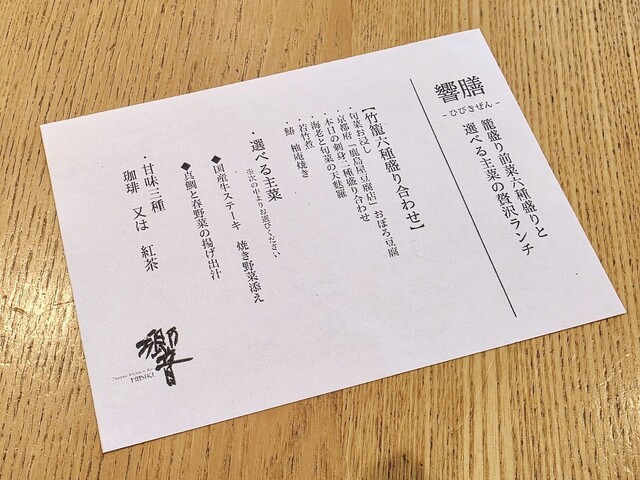 響膳
- ひびきぜん -
籠盛り前菜六種盛りと
選べる主菜の贅沢ランチ
【竹籠六種盛り合わせ】
・旬菜お浸し
・京都府「鹿島屋豆腐店」おぼろ豆腐
・本日の刺身二種盛り合わせ
・海老と旬菜の天麩羅
・若竹煮
・鰆 柚庵焼き
・選べる主菜
※次の中よりお選びください
◆国産牛ステーキ 焼き野菜添え
◆真鯛と春野菜の揚げ出汁
・甘味三種
珈琲 又は 紅茶
響
HIBIKI